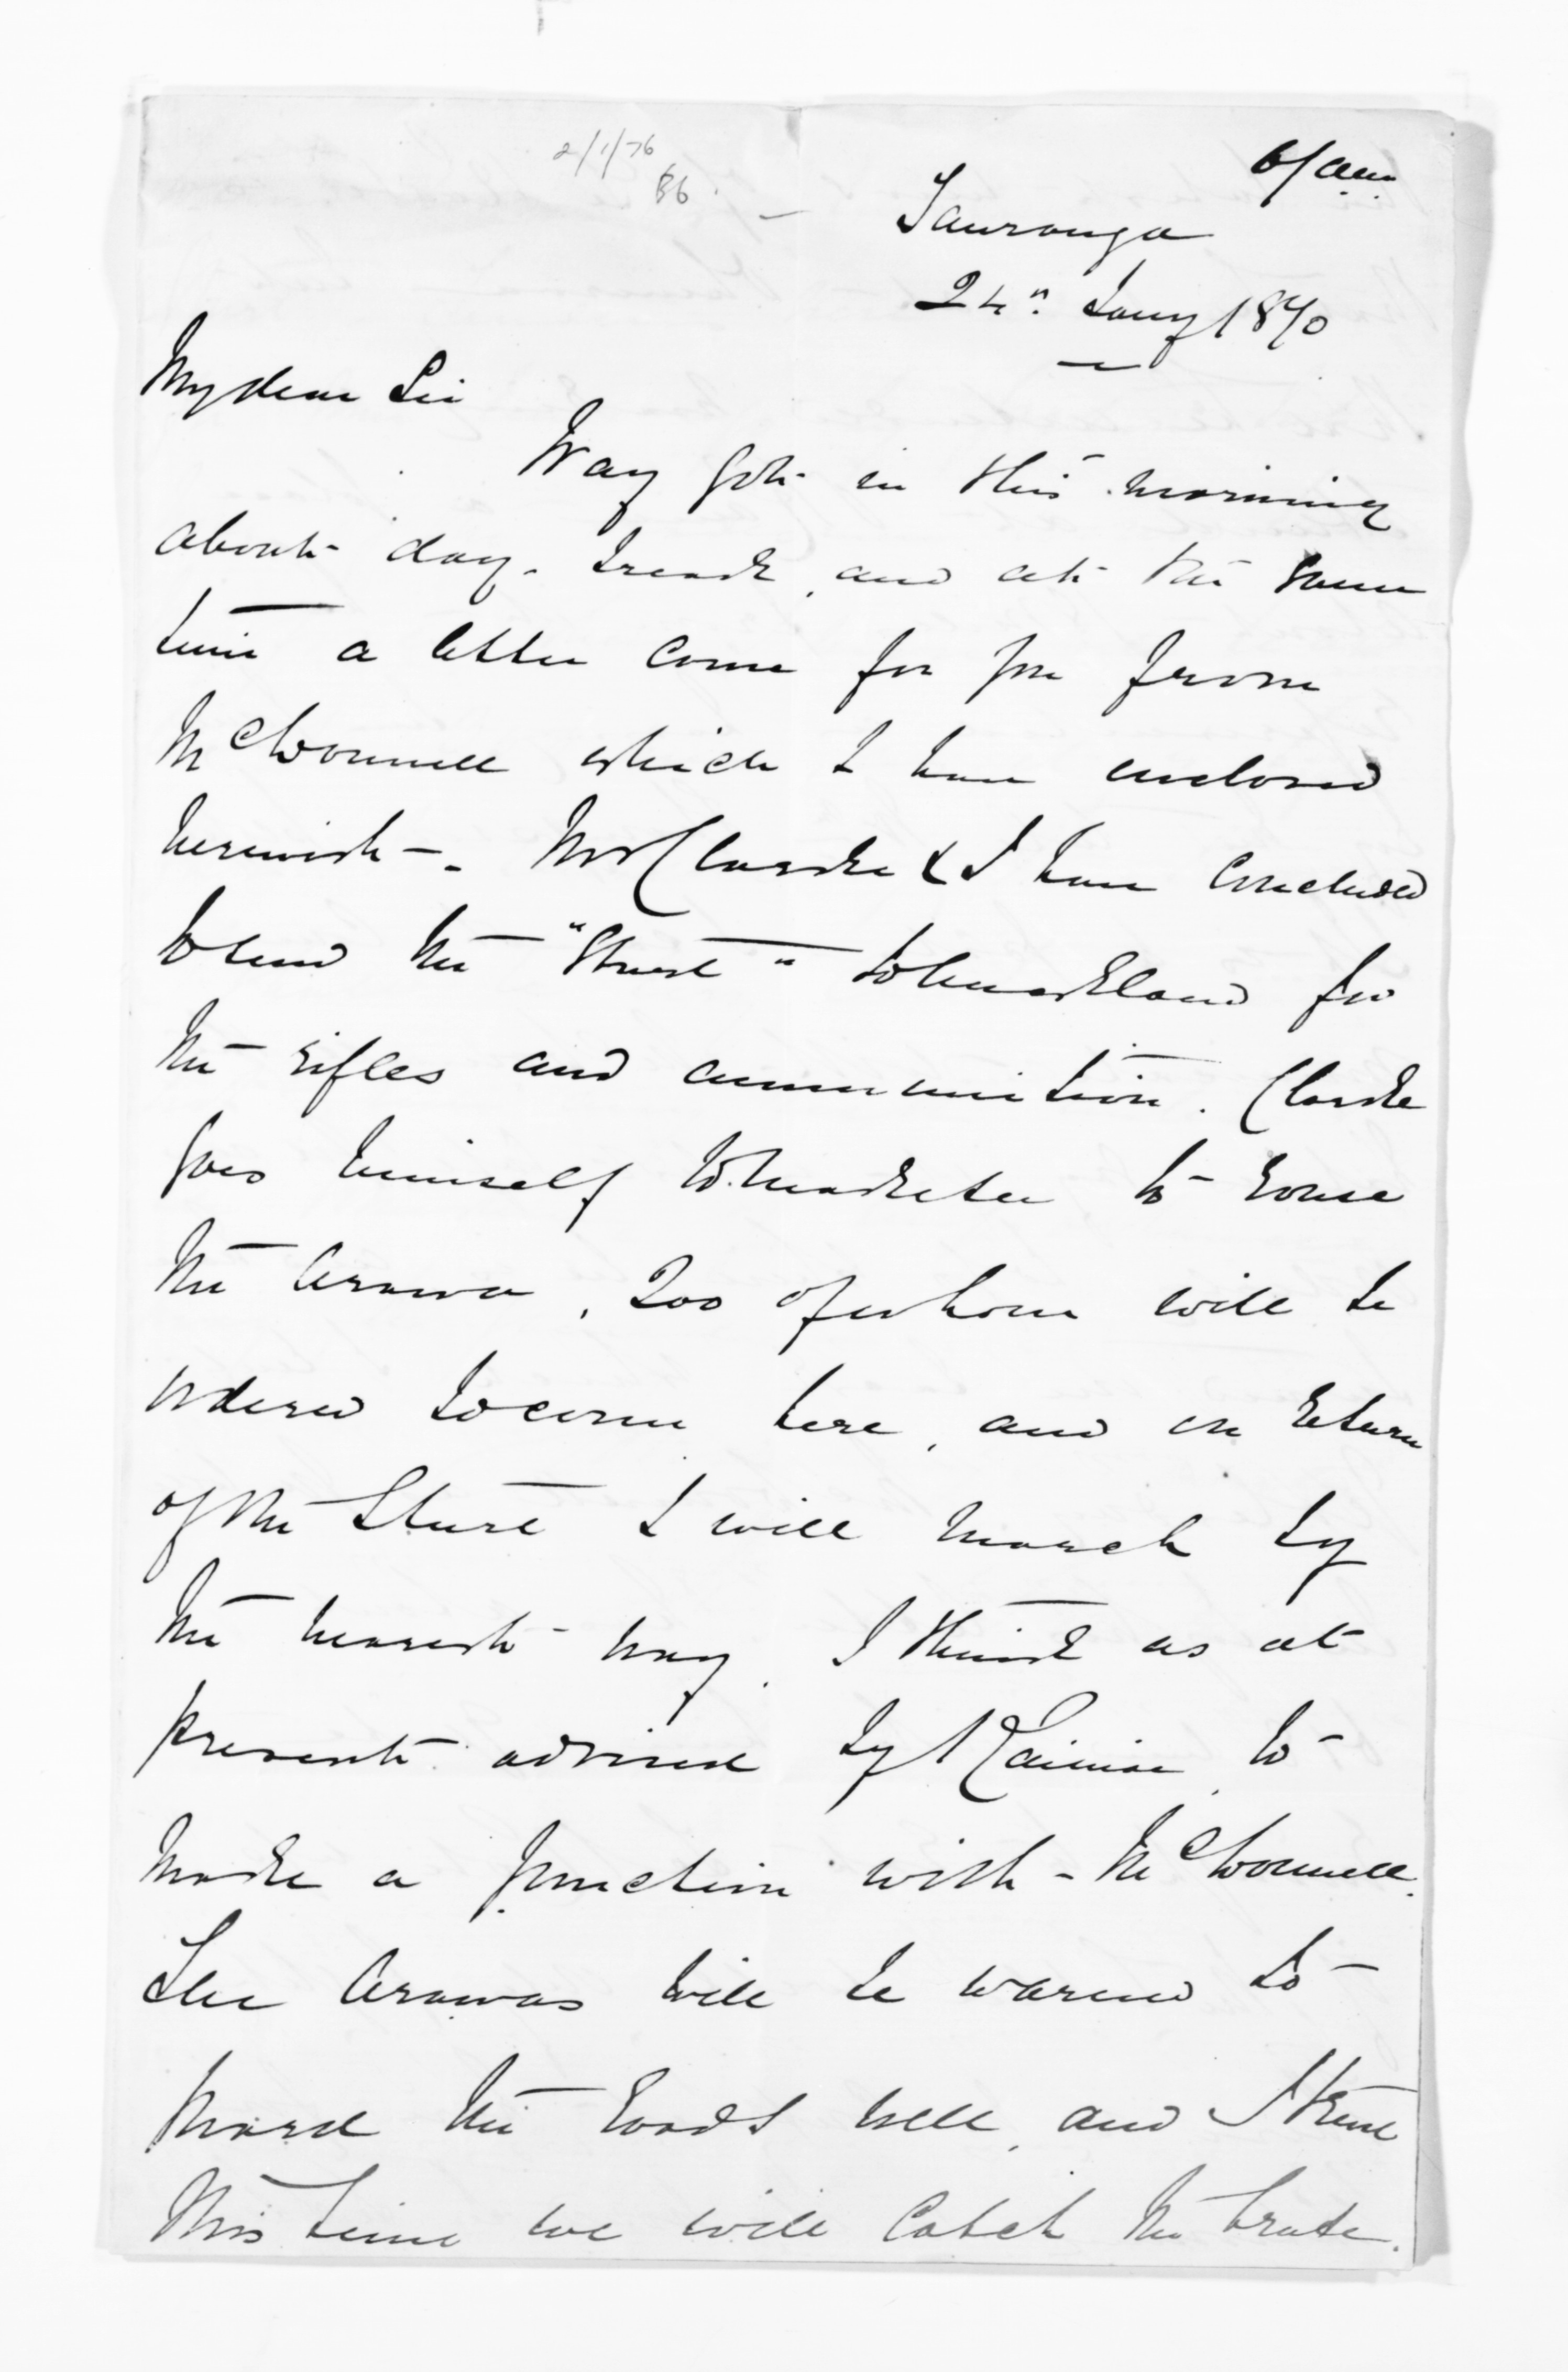 2/1/76
86
6/am
Tauranga
24th Jany 1870
My dear Sir
Way got in this morning
about day-break, and at the same
time a letter came for you from
McDonnell which I have enclosed
herewith-. Mr Clarke & I have concluded
to send the "Sturt" to Auckland for
the rifles and ammunition. Clarke
goes himself to Maketu to rouse
the Arawa, 200 of whom will be
ordered to come here, and on return
of the Sturt I will march by
the nearest way. I think as at
present advised by to
make a junction with - McDonnell.
The Arawas will be warned to
guard the roads well, and I trust
this time we will catch the brute.